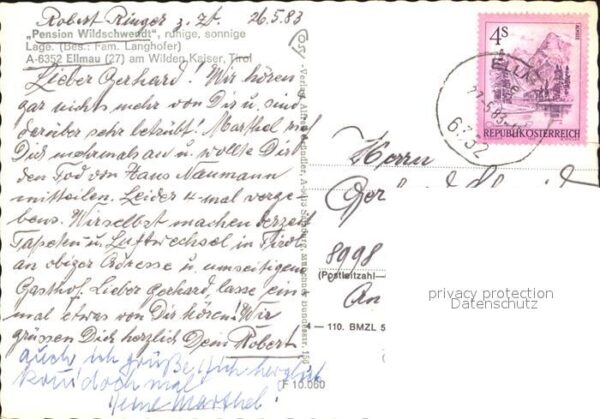 Robert Ringer z. Zt. 26.5.83
„Pension Wildschwendt", ruhige, sonnige
Lage. (Bes.: Fam. Langhofer)
A-6352 Ellmau (27) am Wilden Kaiser, Tirol
Lieber Gerhard! Wir hören
gar nichts mehr von Dir u. sind
darüber sehr betrübt! Marthel rief
Dich mehrmals an u. wollte Dir
den Tod von Hans Naumann
mitteilen. Leider 4 mal verge-
bens. Wir selbst machen derzeit
Tapeten u. Luftwechsel in Tirol
an obiger Adresse u. umseitigen
Gasthof. Lieber Gerhard, lasse ein
mal etwas von Dir hören! Wir
grüssen Dich herzlich Dein Robert
auch ich grüße Dich herzlich
komm doch mal
Deine Marthel
F 10.060
110. BMZL 5
4 S
REPUBLIK ÖSTERREICH
6352
Herrn
Ger
8998
(Postleitzahl
An
privacy protection
Datenschutz